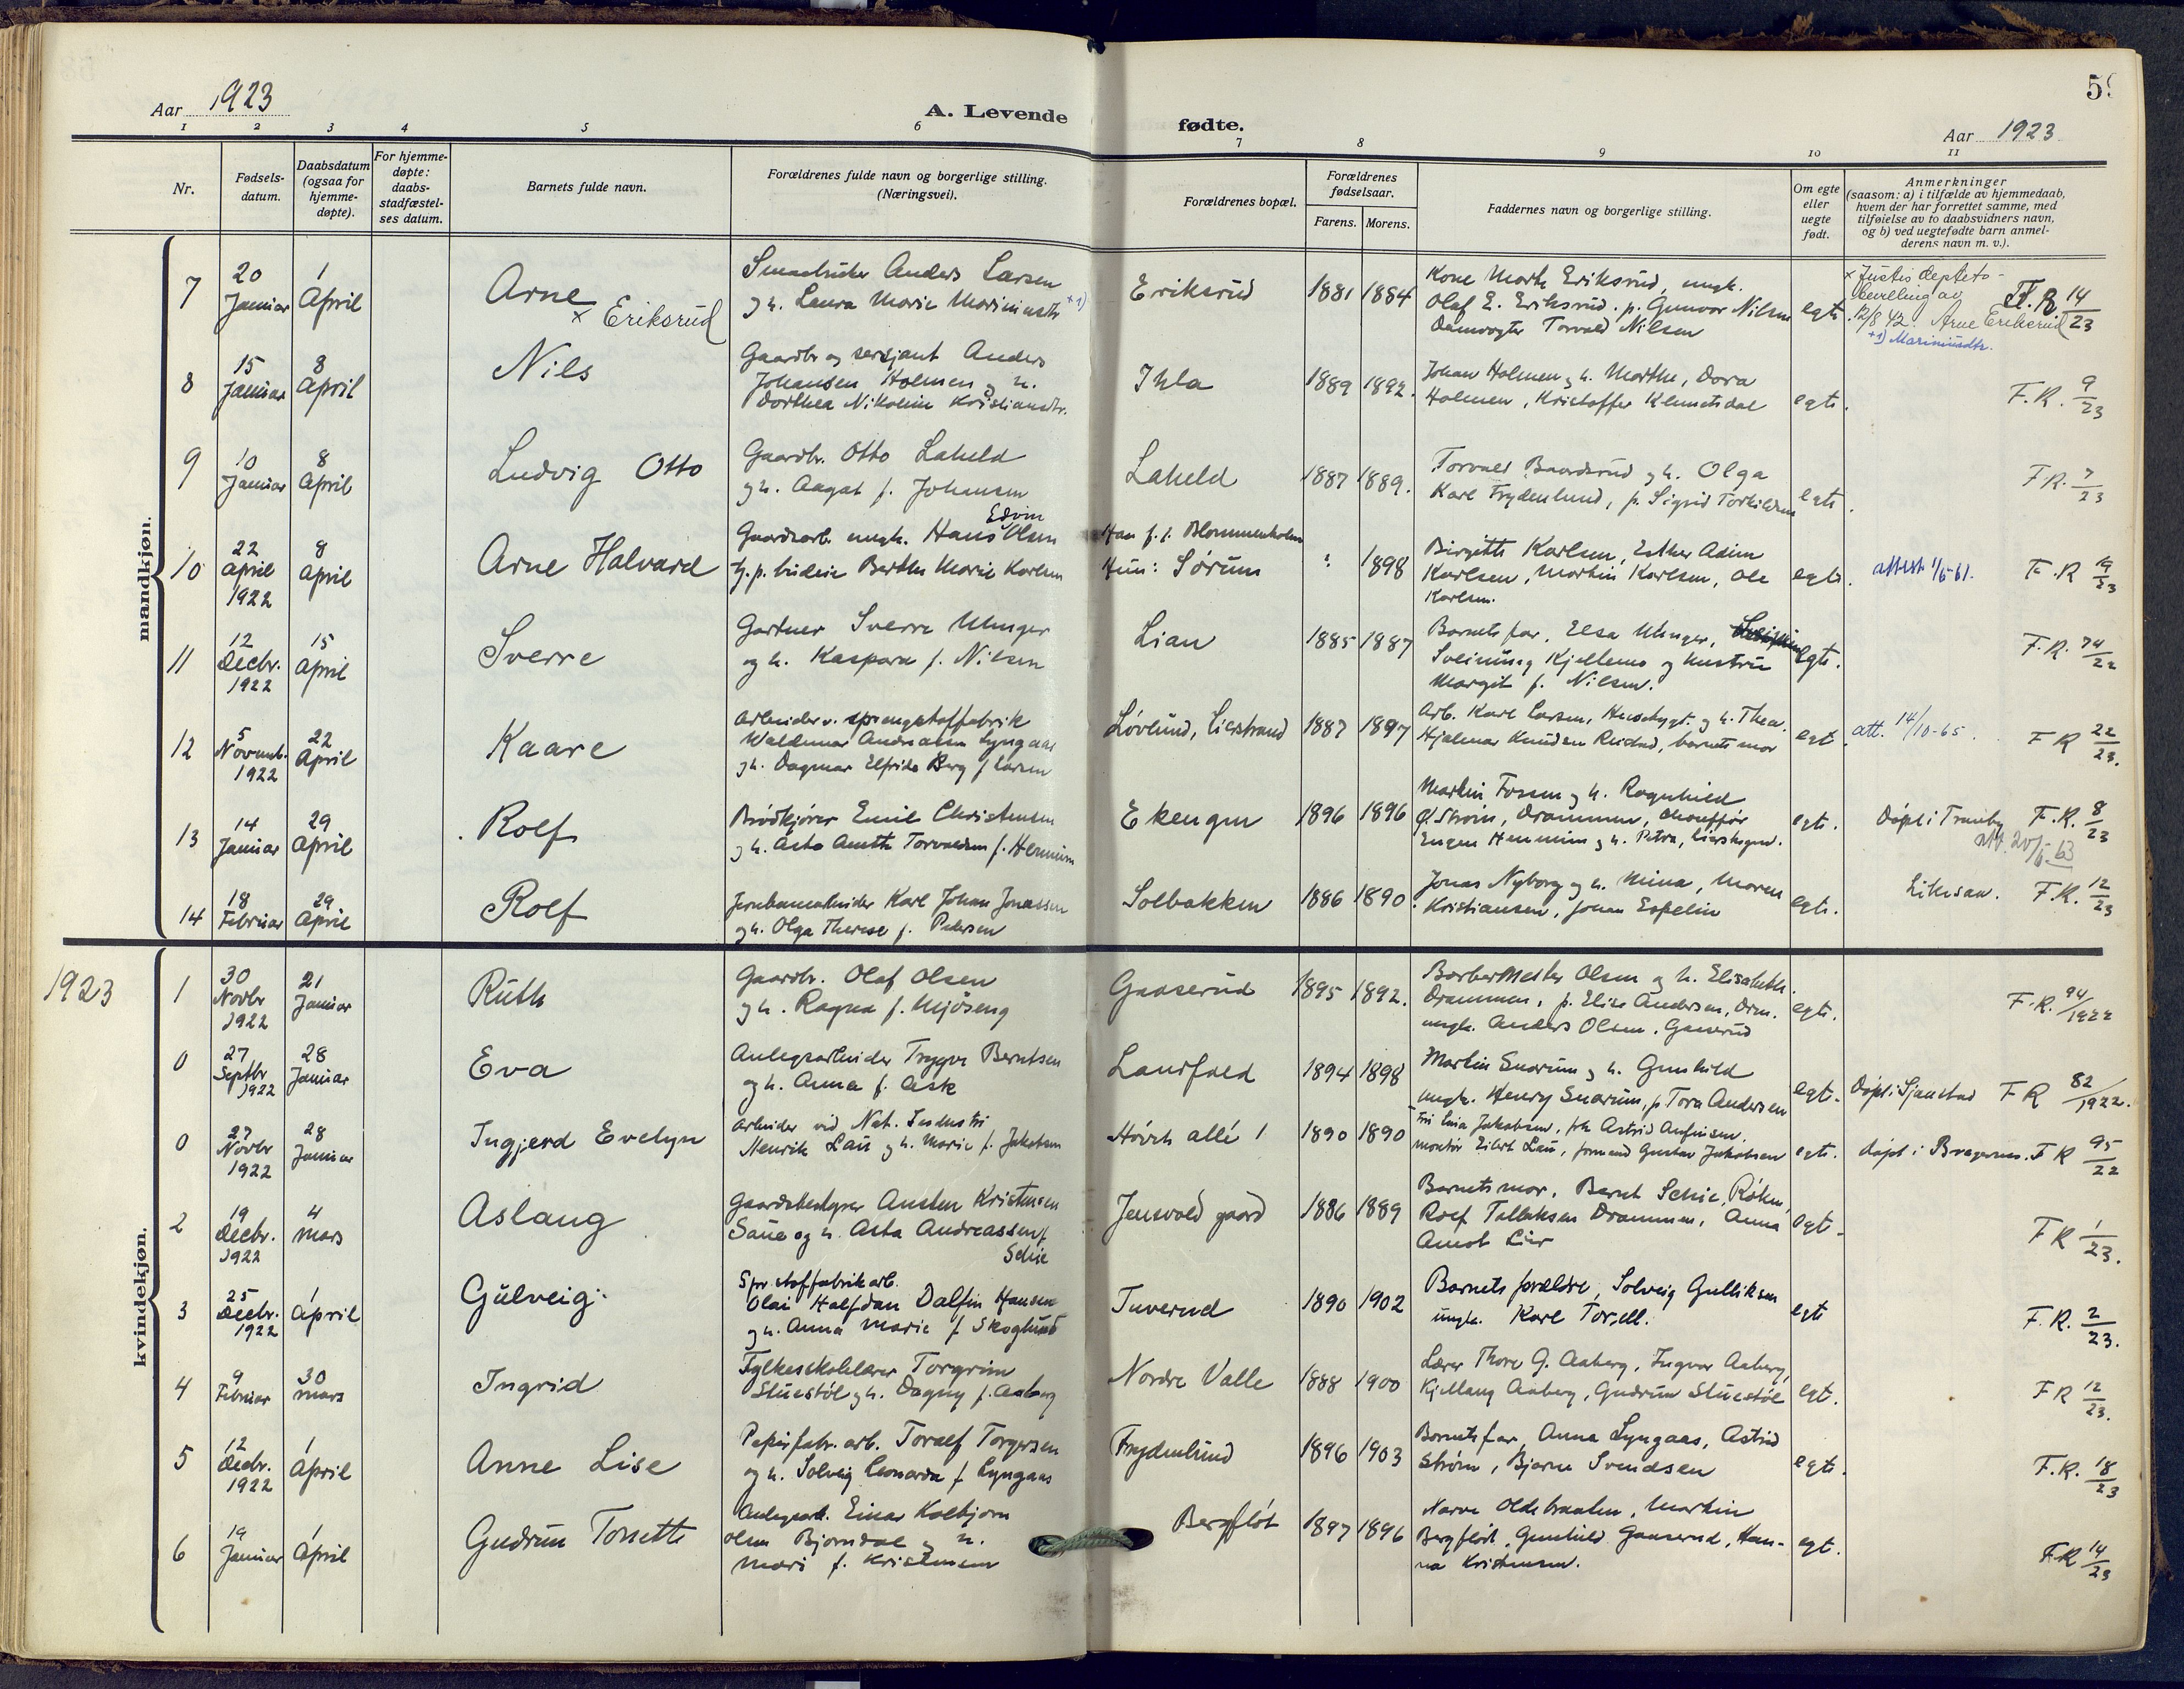 Aar 1923
A. Levende fødte.
59
Aar 1923
1 2 3 4 5 6 7 8 9 10 11
Nr.
Fødsels-
datum.
Daabsdatum
(ogsaa for
hjemme-
døpte).
For hjemme-
døpte:
daabs-
stadfæstel-
ses datum.
Barnets fulde navn.
Forældrenes fulde navn og borgerlige stilling.
(Næringsvei).
Forældrenes bopæl.
Forældrenes
fødselsaar.
Farens. Morens.
Faddernes navn og borgerlige stilling.
Om egte
eller
uegte
født.
Anmerkninger
(saasom: a) i tilfælde av hjemmedaab,
hvem der har forrettet samme, med
tilføielse av to daabsvidners navn,
og b) ved uegtefødte barn anmel-
derens navn m. v.).
mandkjøn.
7
20
Januar
1
April
Arne
x Eriksrud
Anders Larsen
og h. Laura Marie +1)
Eriksrud
1881 1884
Kone Marte Eriksrud, ungk.
Olaf E. Eriksrud. p. Gunvor Nilsen
Torvald Nilsen
egte
x Justis deptets
bevilling av
12/8 42. Arne Eriksrud
+1) Mariniusdtr.
F. R. 14/23
8
15
Januar
8
April
Nils
Gaardbr og sersjant Anders
Johansen Holmen og h.
Dorthea Nikoline Kristiansdtr.
Ihla
1889 1892.
Johan Holmen og h. Marthe, Dora
Holmen, Kristoffer Klemetsdal
egte.
F. R. 9/23
9
10
Januar
8
April
Ludvig Otto
Gaardbr. Otto Laheld
og h. Aagat f. Johansen
Laheld
1887 1889.
Torvald Baardsrud og h. Olga
Karl Frydenlund, p. Sigrid Torkildsen
egte.
F R. 7/23
10
22
April
1922
8
April
Arne Halvard
Gaardsarb. ungk. Hans Edvin Olsen
og p. budeie Berthe Marie Karlsen
Han f. t. Blommenholm
Hun: Sørum
: 1898
Birgitte Karlsen, Esther
Karlsen, Martin Karlsen, Ole
Karlsen.
egte.
attest 1/6-61.
F. R 19/23
11
12
Decbr.
1922
15
April
Sverre
Gartner Sverre Unger
og h. Kaspara f. Nilsen
Lian
1885 1887
Barnets far, Elsa Unger,
Sveinung Kjellemo og hustru
Margit f. Nilsen.
egte.
F. R. 74/22
12
5
Novemb.
1922
22
April
Kaare
Arbeider v. sprengstoffabrik
Waldemar Andreassen Lyngaas
og h. Dagmar Elfrida Berg f Larsen
Løvlund, Lierstrand
1887 1897
Arb. Karl Larsen, og h. Thea.
Hjalmar Knudsen barnets mor
egte.
att. 14/10-65.
F R 22/23.
13
14
Januar
29
April
Rolf
Brødkjører Emil Christensen
og h. Asta Torvaldsen f. Henning
Ekengen
1896 1896
Martin Fossum og h. Ragnhild
Ø. Strøm, Drammen, chauffør
og h. Petra, Lierskogen.
egte.
Døpt i Tranby F. R. 8/23
att. 20/5 63
14
18
Februar
29
April
Rolf
Jernbanearbeider Karl Johan Jonassen
og h. Olga Therese f. Pedersen
Solbakken
1886 1890.
Jonas Nyborg og h. Mina, Maren
Kristiansen, Johan Espelin
egte.
F. R. 12/23
1923
kvindekjøn.
1
30
Novbr
1922
21
Januar
Ruth
Gaardbr. Olaf Olsen
og h. Ragna f. Mjøseng
Gaaserud
1895 1892.
Barbermester Olsen og h. Elisabeth.
Drammen, p. Elise Andersen, Drm.
ungk. Anders Olsen, Gaaserud
egte.
F. R. 94/1922
0
27
Septbr
1922
28
Januar
Eva
Anlegsarbeider Trygve Berntsen
og h. Anna f. Ask
Landfald
1894 1898
Martin Snarum og h. Gunhild
ungk. Henry Snarum, p Tora Andersen
egte.
Døpt i Sjaastad F R 82/1922.
0
27
Novbr
1922
28
Januar
Ingjerd Evelyn
Arbeider ved Nat. Industri
Henrik Lau og h. Marie f. Jakobsen
Høvik allé 1
1890 1890
Fru Lina Jakobsen, frk Astrid Anfinsen.
montør Eilert Lau, formand Gustav Jakobsen
egte.
døpt i Bragernes. F R 95/22
2
19
Decbr.
1922
4
mars
Aslaug
Gaardsbestyrer Austen Kristensen
Saue og h. Asta Andreassen f
Schie
Jensvold gaard
1886 1889
Barnets mor, Bernt Schie, Røken,
Rolf Tollefsen Drammen, Anna
Amot Lier
egte.
F R 1/23.
3
25
Decbr.
1922
1
April
Gulveig
Spr. stoffabrikarb.
Olai Halfdan Dalfin Hansen
og h. Anna Marie f Skoglund
Tuverud
1890 1902
Barnets forældre, Solveig Gulliksen
ungk. Karl Torsell.
egte
F. R. 2/23.
4
9
Februar
30
mars
Ingrid
Fylkesskolelærer Torgrim
Stuestøl og h. Dagny f. Aaberg
Nordre Valle
1888 1900
Lærer Thore G. Aaberg, Ingvar Aaberg,
Kjellaug Aaberg, Gudrun Stuestøl
egt.
F R 12/23.
5
12
Decbr.
1922
1
April
Anne Lise
Papirfabr. arb. Toralf Torgersen
og h. Solveig Leonarda f Lyngaas
Frydenlund
1896 1903
Barnets far, Anna Lyngaas, Astrid
Strøm, Bjarne Svendsen
egte.
F. R. 18/23
6
19
Januar
1
April
Gudrun Torseth
Anlegsarb. Einar Kolbjørn
Olsen Bjørndal og h.
Mari f. Kristensen
Bergfløt
1897 1896
Narve Oldebraaten, Martin
Bergfløt, Gunhild Gaaserud, Han-
na Kristensen.
egt.
F R 14/23